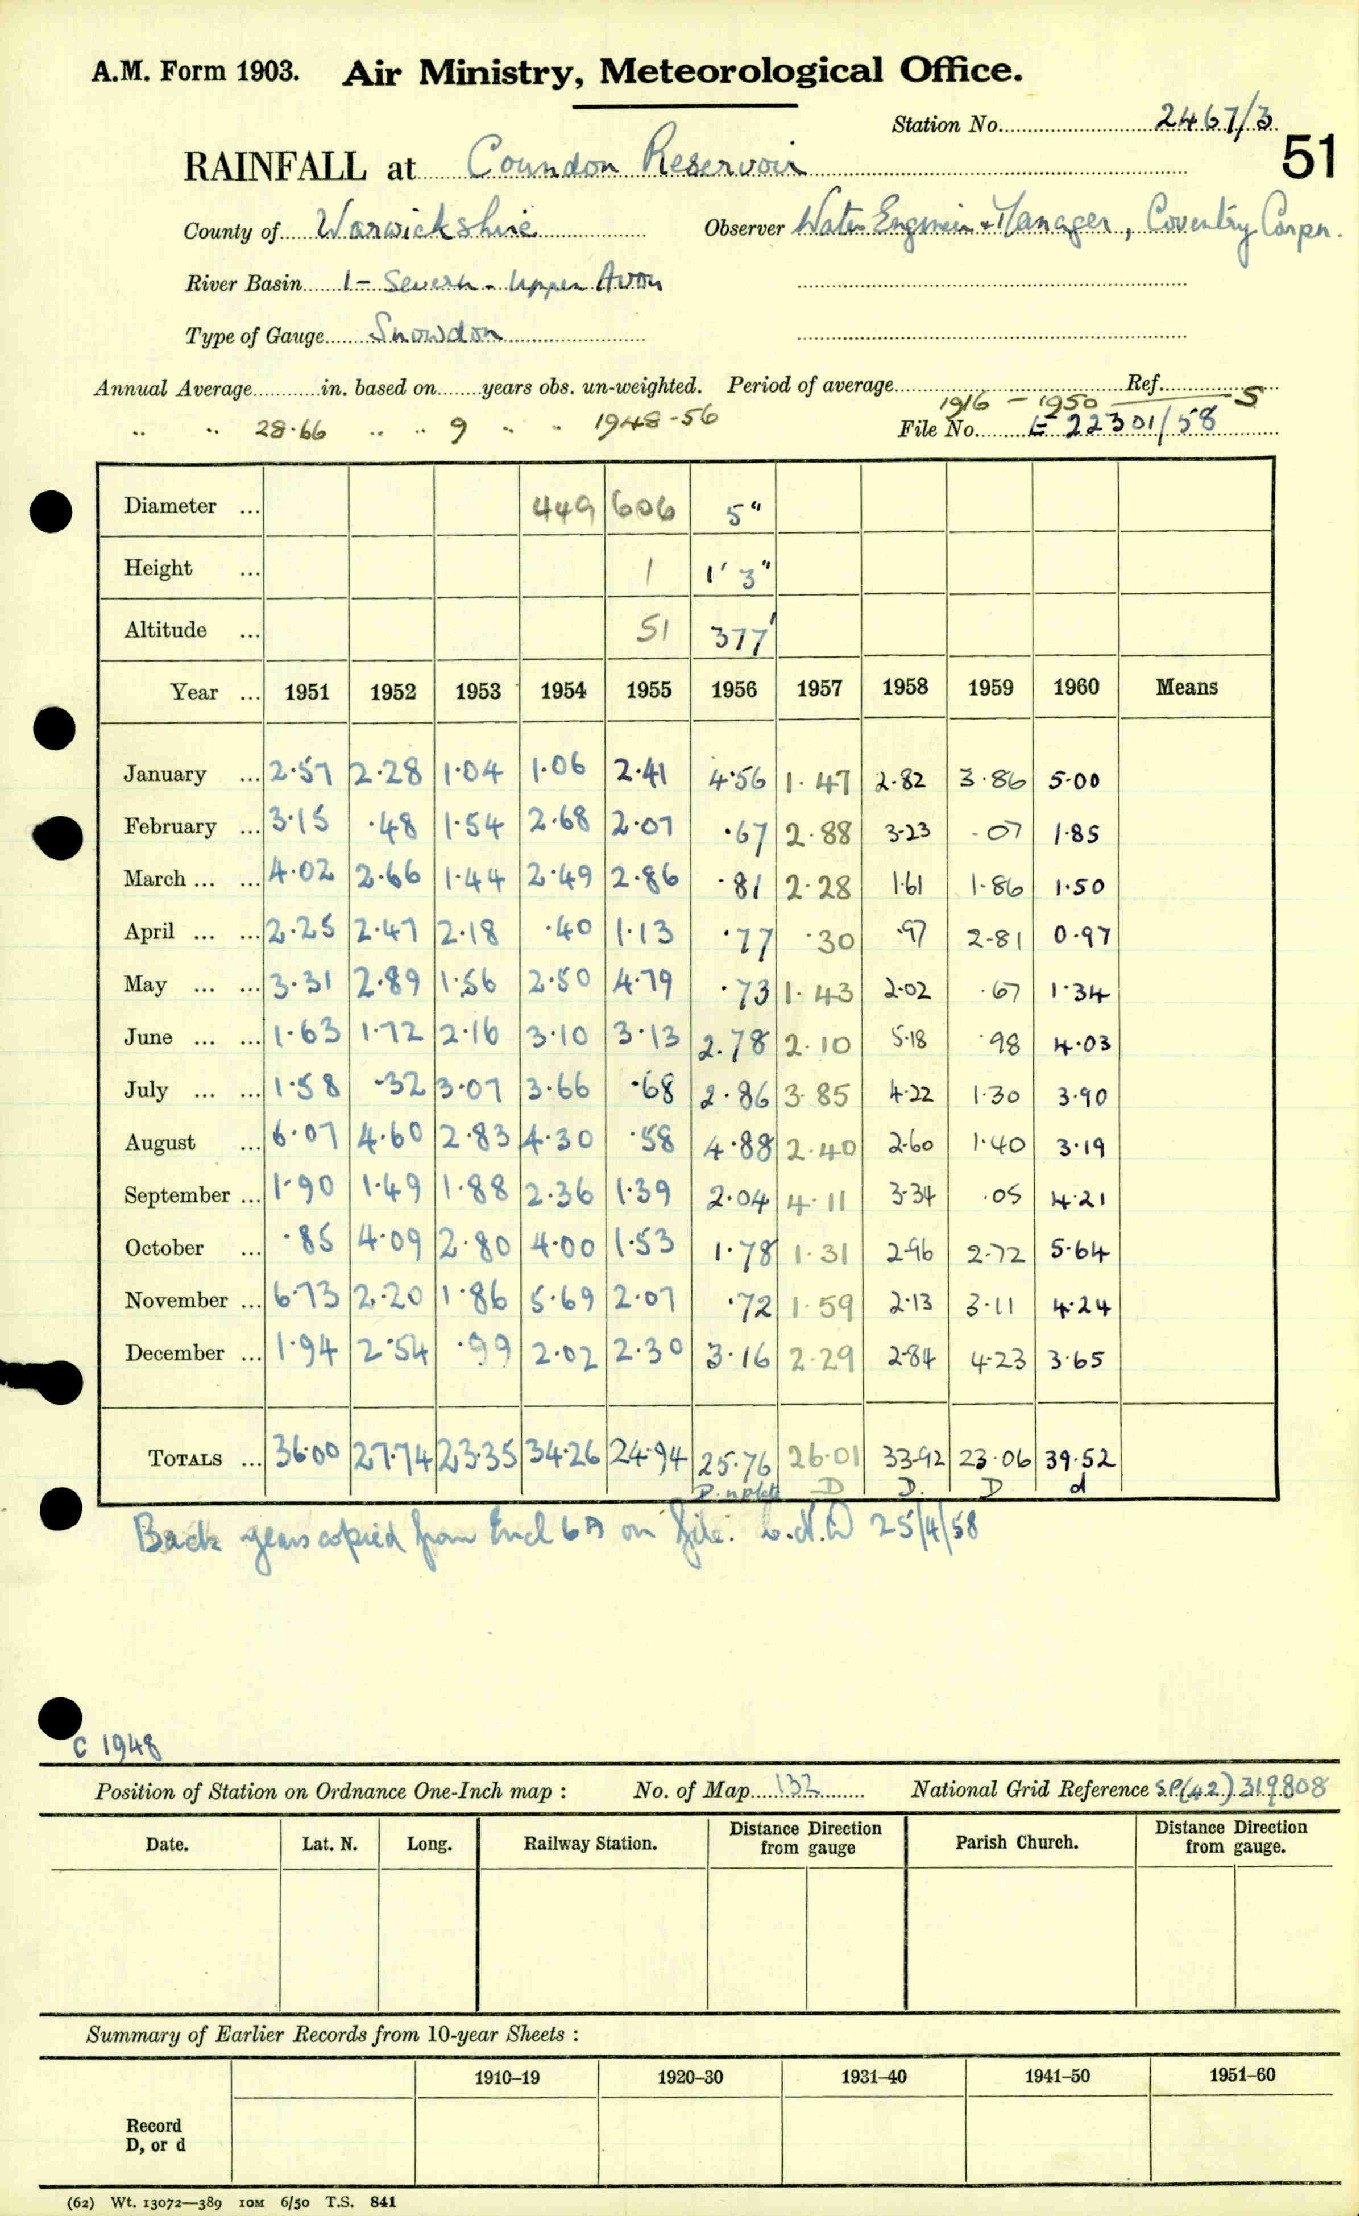 A.M. Form 1903. Air Ministry, Meteorological Office.
Station No. 2467/3
51
RAINFALL at Coundon Reservoir
County of Warwickshire Observer Water Engineer & Manager, Coventry Corpn.
River Basin 1 - Severn - Upper Avon
Type of Gauge Snowdon
Annual Average in. based on years obs. un-weighted. Period of average Ref.
1916 - 1950 S
" " 28.66 " " 9 " " 1948-56 File No. E 22301/58
Diameter ... 449 606 5"
Height ... 1 1' 3"
Altitude ... 51 377'
Year ... 1951 1952 1953 1954 1955 1956 1957 1958 1959 1960 Means
January ... 2.57 2.28 1.04 1.06 2.41 4.56 1.47 2.82 3.86 5.00
February ... 3.15 .48 1.54 2.68 2.07 .67 2.88 3.23 .07 1.85
March ... ... 4.02 2.66 1.44 2.49 2.86 .81 2.28 1.61 1.86 1.50
April ... ... 2.25 2.47 2.18 .40 1.13 .77 .30 .97 2.81 0.97
May ... ... 3.31 2.89 1.56 2.50 4.79 .73 1.43 2.02 .67 1.34
June ... ... 1.63 1.72 2.16 3.10 3.13 2.78 2.10 5.18 .98 4.03
July ... ... 1.58 .32 3.07 3.66 .68 2.86 3.85 4.22 1.30 3.90
August ... 6.07 4.60 2.83 4.30 .58 4.88 2.40 2.60 1.40 3.19
September ... 1.90 1.49 1.88 2.36 1.39 2.04 4.11 3.34 .05 4.21
October ... .85 4.09 2.80 4.00 1.53 1.78 1.31 2.96 2.72 5.64
November ... 6.73 2.20 1.86 5.69 2.07 .72 1.59 2.13 3.11 4.24
December ... 1.94 2.54 .99 2.02 2.30 3.16 2.29 2.84 4.23 3.65
TOTALS ... 36.00 27.74 23.35 34.26 24.94 25.76 26.01 33.92 23.06 39.52
D D. D d
Back years copied from Encl 6A on file. 25/4/58
C 1948
Position of Station on Ordnance One-Inch map : No. of Map 132 National Grid Reference S.P.(42) 319808
Date. Lat. N. Long. Railway Station. Distance from Direction gauge Parish Church. Distance from Direction gauge.
Summary of Earlier Records from 10-year Sheets :
1910–19 1920–30 1931–40 1941–50 1951–60
Record
D, or d
(62) Wt. 13072—389 10M 6/50 T.S. 841